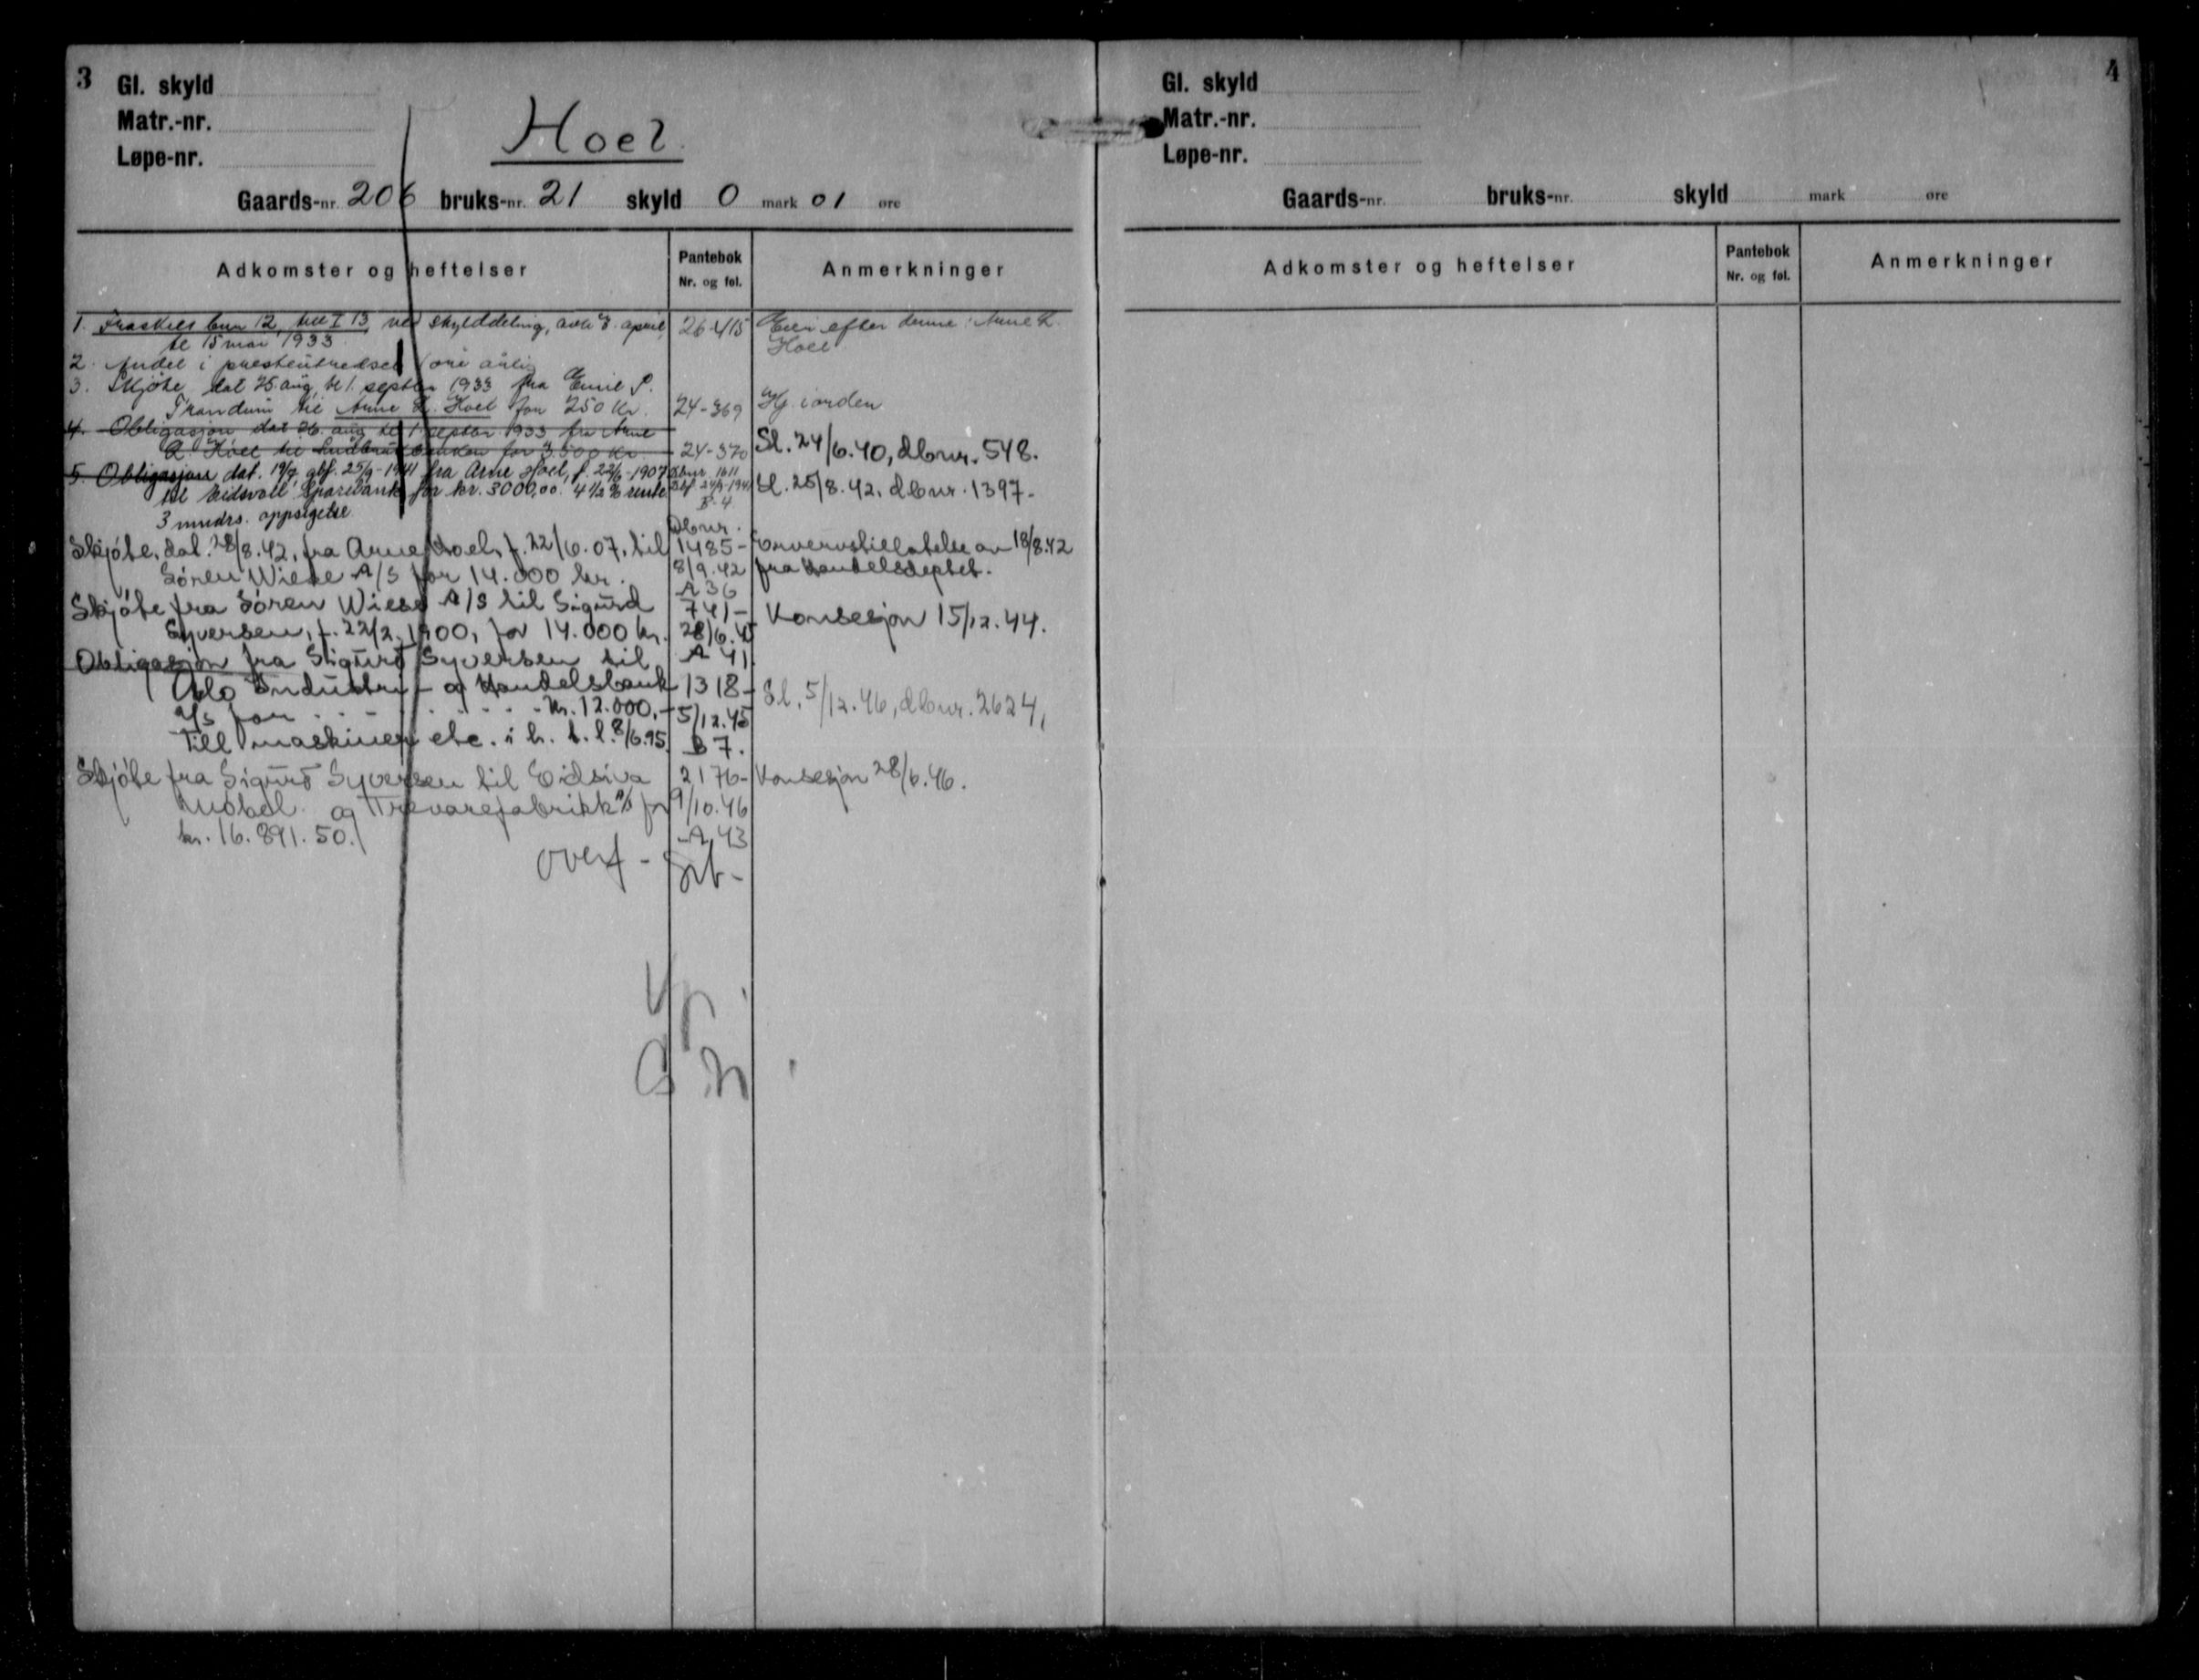 3
Gl. skyld
Matr.-nr.
Løpe-nr.
Hoel
Gaards-nr. 206 bruks-nr. 21 skyld 0 mark 01 øre
Adkomster og heftelser
Pantebok
Nr. og fol.
Anmerkninger
1. Fraskilt bnr 12, ved skylddeling, avh 3. april,
tl 15 mai 1933
26-415
Eier efter denne: Arne R.
Hoel
2. Andel i presteutredsel 1 øre årlig
3. Skjøte, dat 25 aug, tl 1. septbr 1933 fra Emil P.
Trandum til Arne R. Hoel for 250 Kr.
24-369
Hj. i orden
4. Obligasjon dat 26. aug tl 1 septbr. 1933 fra Arne
R. Hoel til for 3.500 Kr
24-370
Sl. 24/6.40, dbnr. 548.
5. Obligasjon dat. 19/9 gbf. 25/9-1941 fra Arne Hoel, f. 22/6-1907
til Eidsvoll Sparebank for kr. 3000,00. 4 1/2 % rente
3 mndrs. oppsigelse
Dbnr 1611
Dbf 24/9-1941
B-4
Sl. 25/8.42, dbnr. 1397-
Skjøte, dat. 28/8.42, fra Arne Hoel, f. 22/6.07, til
Sören Wiese A/S for 14.000 kr.
Dbnr.
1485-
8/9.42
A 36
Ervervstillatelse av 18/8.42
fra Handelsdeptet.
Skjøte fra Sören Wiese A/S til Sigurd
Syversen, f. 22/2.1900, for 14.000 kr.
741-
28/6.45
A 41
Konsesjon 15/12.44.
Obligasjon fra Sigurd Syversen til
Oslo Industri- og Handelsbank
A/S for kr. 12.000,-
Till maskiner etc. i h. t. l. 8/6.95.
1318-
5/12.45
B 7.
Sl. 5/12.46, dbnr. 2624,
Skjøte fra Sigurd Syversen til Eidsiva
Møbel- og Trevarefabrikk A/S for
kr. 16.891.50.
2176-
9/10.46
A 43
Konsesjon 28/6.46.
overf -
4
Gl. skyld
Matr.-nr.
Løpe-nr.
Gaards-nr. bruks-nr. skyld mark øre
Adkomster og heftelser
Pantebok
Nr. og fol.
Anmerkninger